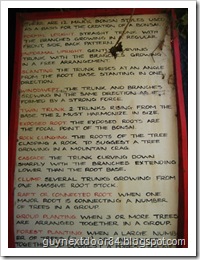 THERE ARE 12 MAJOR BONSAI STYLES USED
AS A BASIS FOR THE CREATION OF A BONSAI
FORMAL UPRIGHT STRAIGHT TRUNK WITH
BRANCHES GROWING IN A REGULAR
RIGHT SIDE, BACK PATTERN
INFORMAL UPRIGHT GENTLY CURVING
TRUNK WITH THE BRANCHES GROWING
IN A FREE ARRANGEMENT.
SLANTING THE TRUNK RISES AT AN ANGLE
FROM THE ROOT BASE STANTING IN ONE
DIRECTION.
WINDSWEPT THE TRUNK AND BRANCHES
GROWING IN THE SAME DIRECTION AS IF
FORMED BY A STRONG FORCE.
TWIN TRUNK 2 TRUNKS RISING FROM THE
BASE THE 2 MUST HARMONIZE IN SIZE.
EXPOSED ROOT THE EXPOSED ROOTS ARE
THE FOCAL POINT OF THE BONSAI.
ROCK CLINGING THE ROOTS OF THE TREE
CLASPING A ROCK TO SUGGEST A TREE
GROWING IN A MOUNTAIN CRAG
CASCADE THE TRUNK CURVING DOWN
SHARPLY WITH THE BRANCHES EXTENDING
LOWER THAN THE ROOT BASE.
CLUMP SEVERAL TRUNKS GROWING FROM
ONE MASSIVE ROOT STOCK
RAFT OR CONNECTED ROOT WHEN ONE
MAJOR ROOT IS CONNECTING A NUMBER
OF TREES IN A GROUP
GROUP PLANTING WHEN 3 OR MORE TREES
ARE ARRANGED TOGETHER IN A GROUP.
FOREST PLANTING WHEN A LARGE NUMBER
OF TREES
TOGETHER
guynextdoor84.blogspot.com